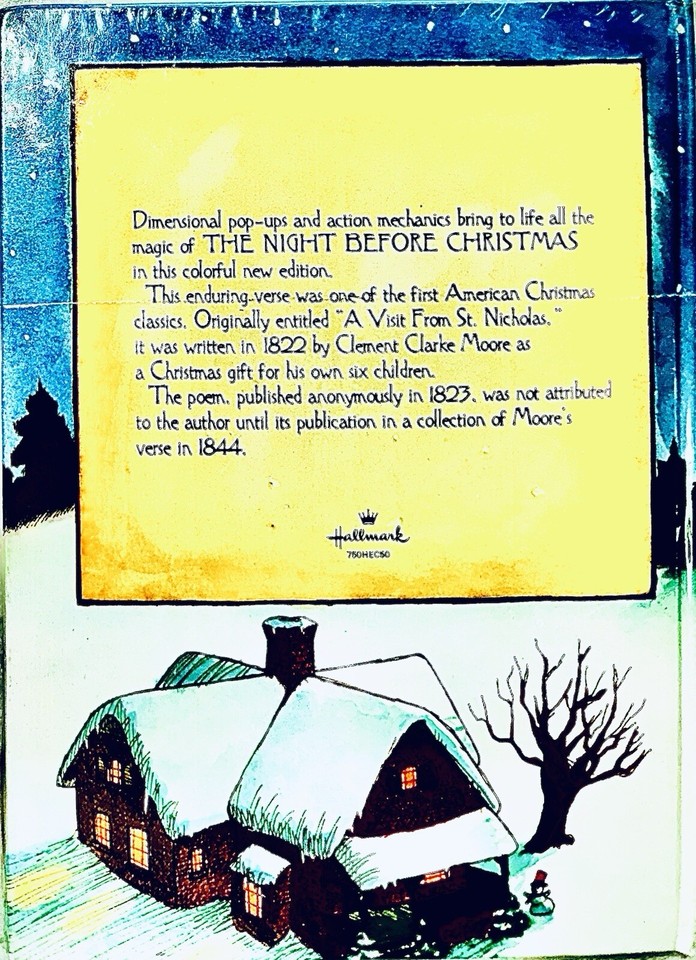 Dimensional pop-ups and action mechanics bring to life all the
magic of THE NIGHT BEFORE CHRISTMAS
in this colorful new edition.
This enduring verse was one of the first American Christmas
classics. Originally entitled "A Visit From St. Nicholas,"
it was written in 1822 by Clement Clarke Moore as
a Christmas gift for his own six children.
The poem, published anonymously in 1823, was not attributed
to the author until its publication in a collection of Moore's
verse in 1844.
Hallmark
750HEC50